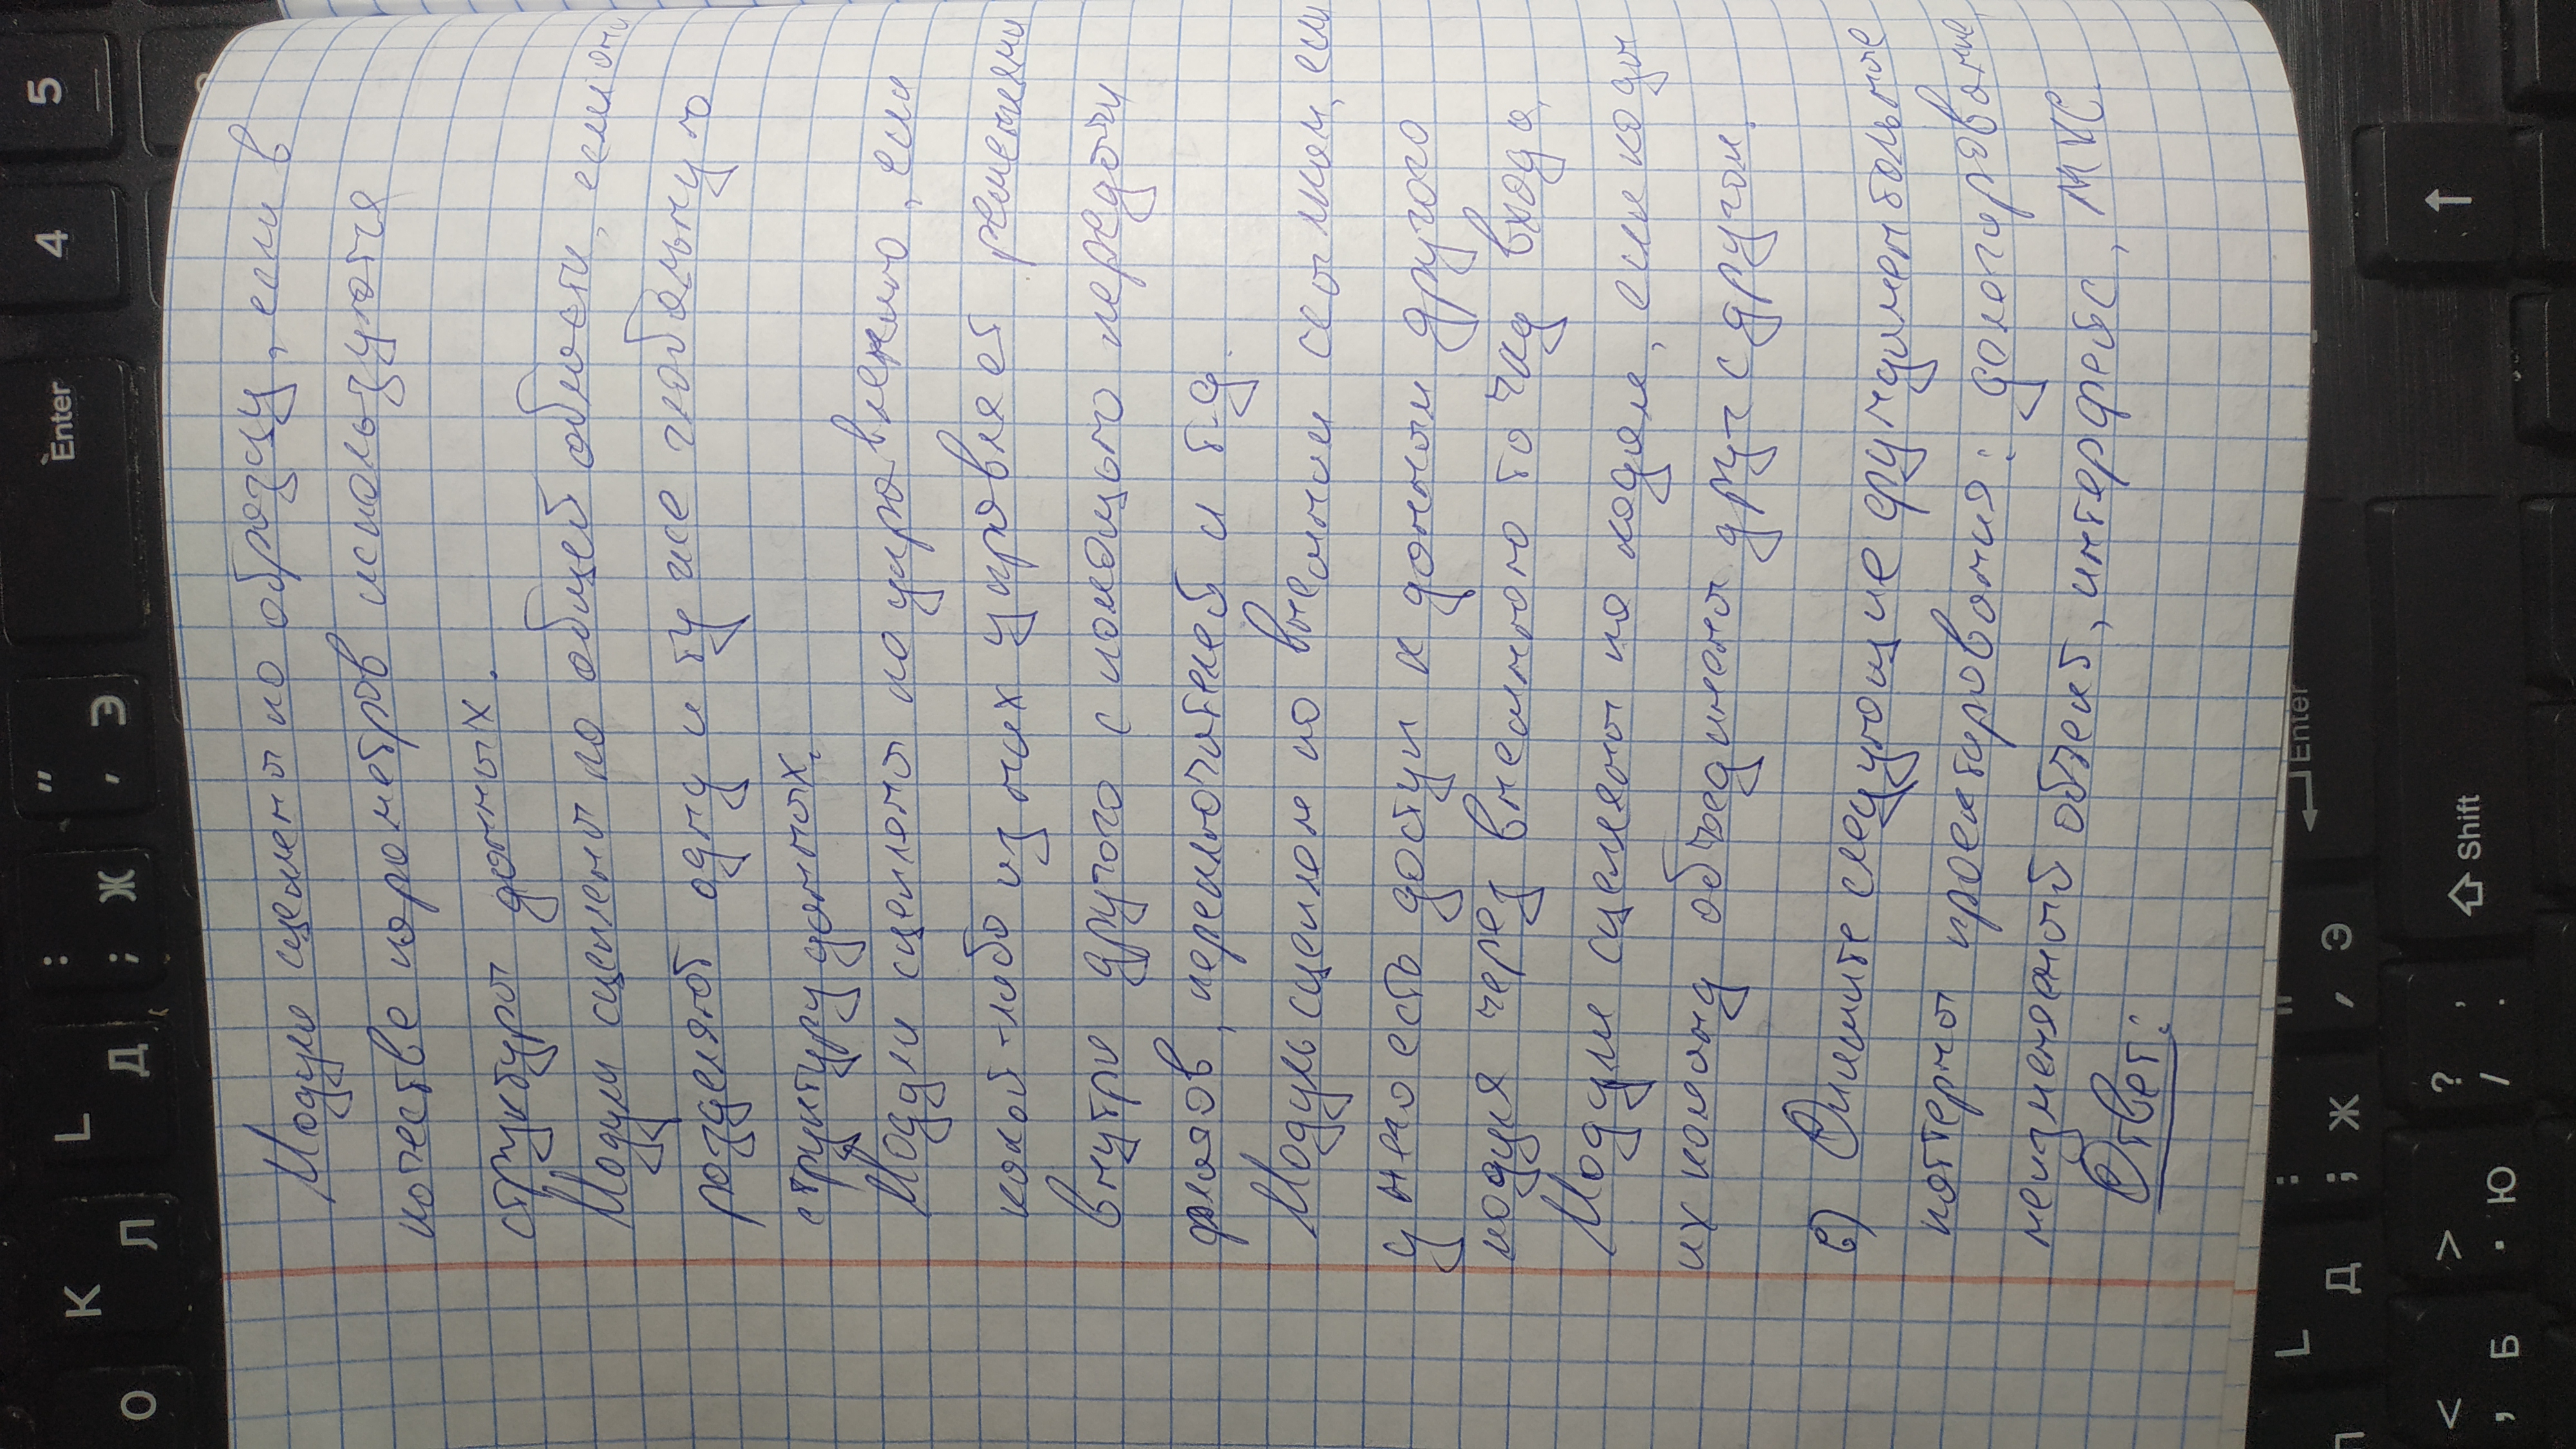 K L : " Enter 4 5
О Л Д ; Ж ' Э
Модули сцеплены по образцу, если в
качестве параметров используются
структуры данных.
Модули сцеплены по общей области, если они
разделяют одну и ту же глобальную
структуру данных.
Модули сцеплены по управлению, если
какой-либо из них управляет решениями
внутри другого с помощью передачи
флагов, переключателей и т.д.
Модуль сцеплен по внешним ссылкам, если
у него есть доступ к данным другого
модуля через внешнюю точку входа.
Модули сцеплены по кодам, если коды
их команд объединены друг с другом.
в) Опишите следующие фундаментальные
паттерны проектирования: делегирование,
неизменяемый объект, интерфейс, MVC.
Ответ:
L : " Enter
Д ; Ж ' Э
< > ? , Shift ↑
, Б . Ю / .